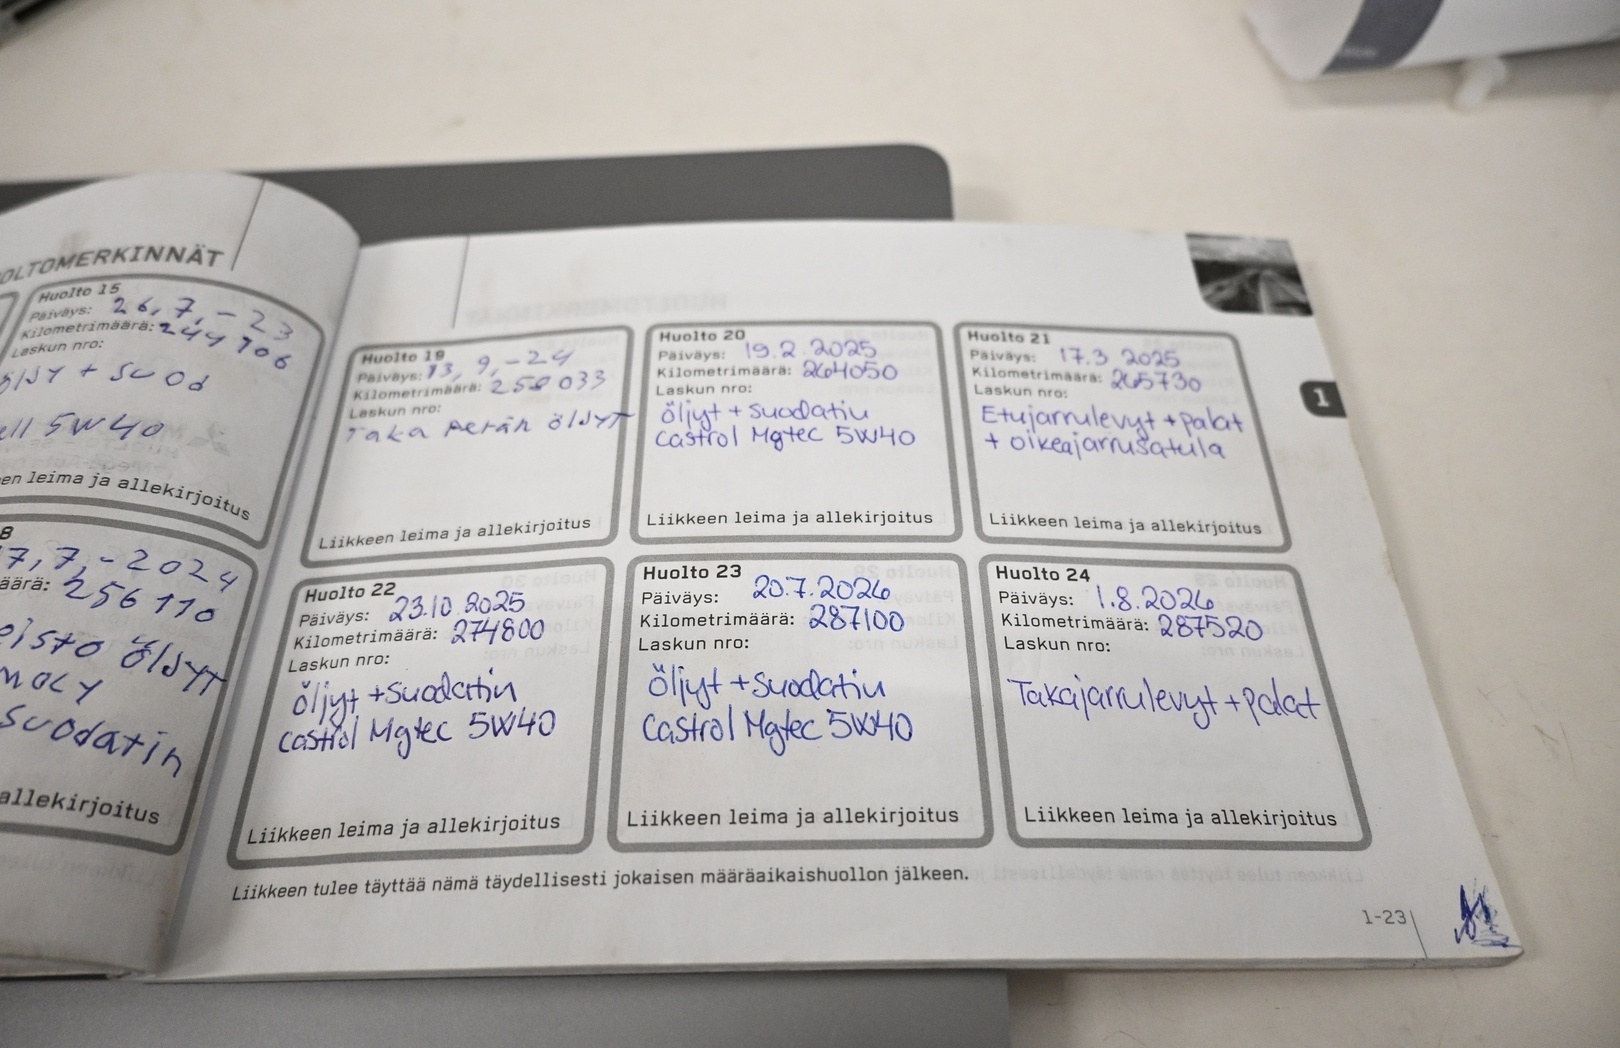 OLTOMERKINNÄT
Huolto 15
Päiväys: 26,7,-23
Kilometrimäärä: 244706
Laskun nro:
öljy + suod
ell 5W40
en leima ja allekirjoitus
8
7,7,-2024
äärä: 256110
eisto öljyt
moly
suodatin
allekirjoitus
Huolto 19
Päiväys: 13,9,-24
Kilometrimäärä: 258033
Laskun nro:
Taka perän öljyt
Liikkeen leima ja allekirjoitus
Huolto 20
Päiväys: 19.2.2025
Kilometrimäärä: 264050
Laskun nro:
öljyt + suodatin
Castrol Mgtec 5W40
Liikkeen leima ja allekirjoitus
Huolto 21
Päiväys: 17.3.2025
Kilometrimäärä: 265730
Laskun nro:
Etujarrulevyt + palat
+ oikeajarrusatula
Liikkeen leima ja allekirjoitus
1
Huolto 22
Päiväys: 23.10.2025
Kilometrimäärä: 274800
Laskun nro:
öljyt + suodatin
Castrol Mgtec 5W40
Liikkeen leima ja allekirjoitus
Huolto 23
Päiväys: 20.7.2026
Kilometrimäärä: 287100
Laskun nro:
öljyt + suodatin
Castrol Mgtec 5W40
Liikkeen leima ja allekirjoitus
Huolto 24
Päiväys: 1.8.2026
Kilometrimäärä: 287520
Laskun nro:
Takajarrulevyt + palat
Liikkeen leima ja allekirjoitus
Liikkeen tulee täyttää nämä täydellisesti jokaisen määräaikaishuollon jälkeen.
1-23